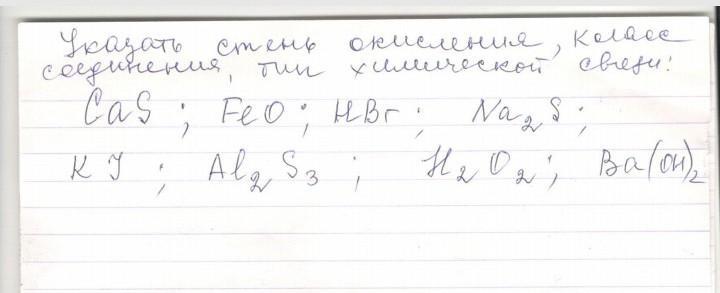 Указать стень окисления, класс
соединения, тип химической связи:
CaS; FeO; HBr; Na₂S;
KJ; Al₂S₃; H₂O₂; Ba(OH)₂